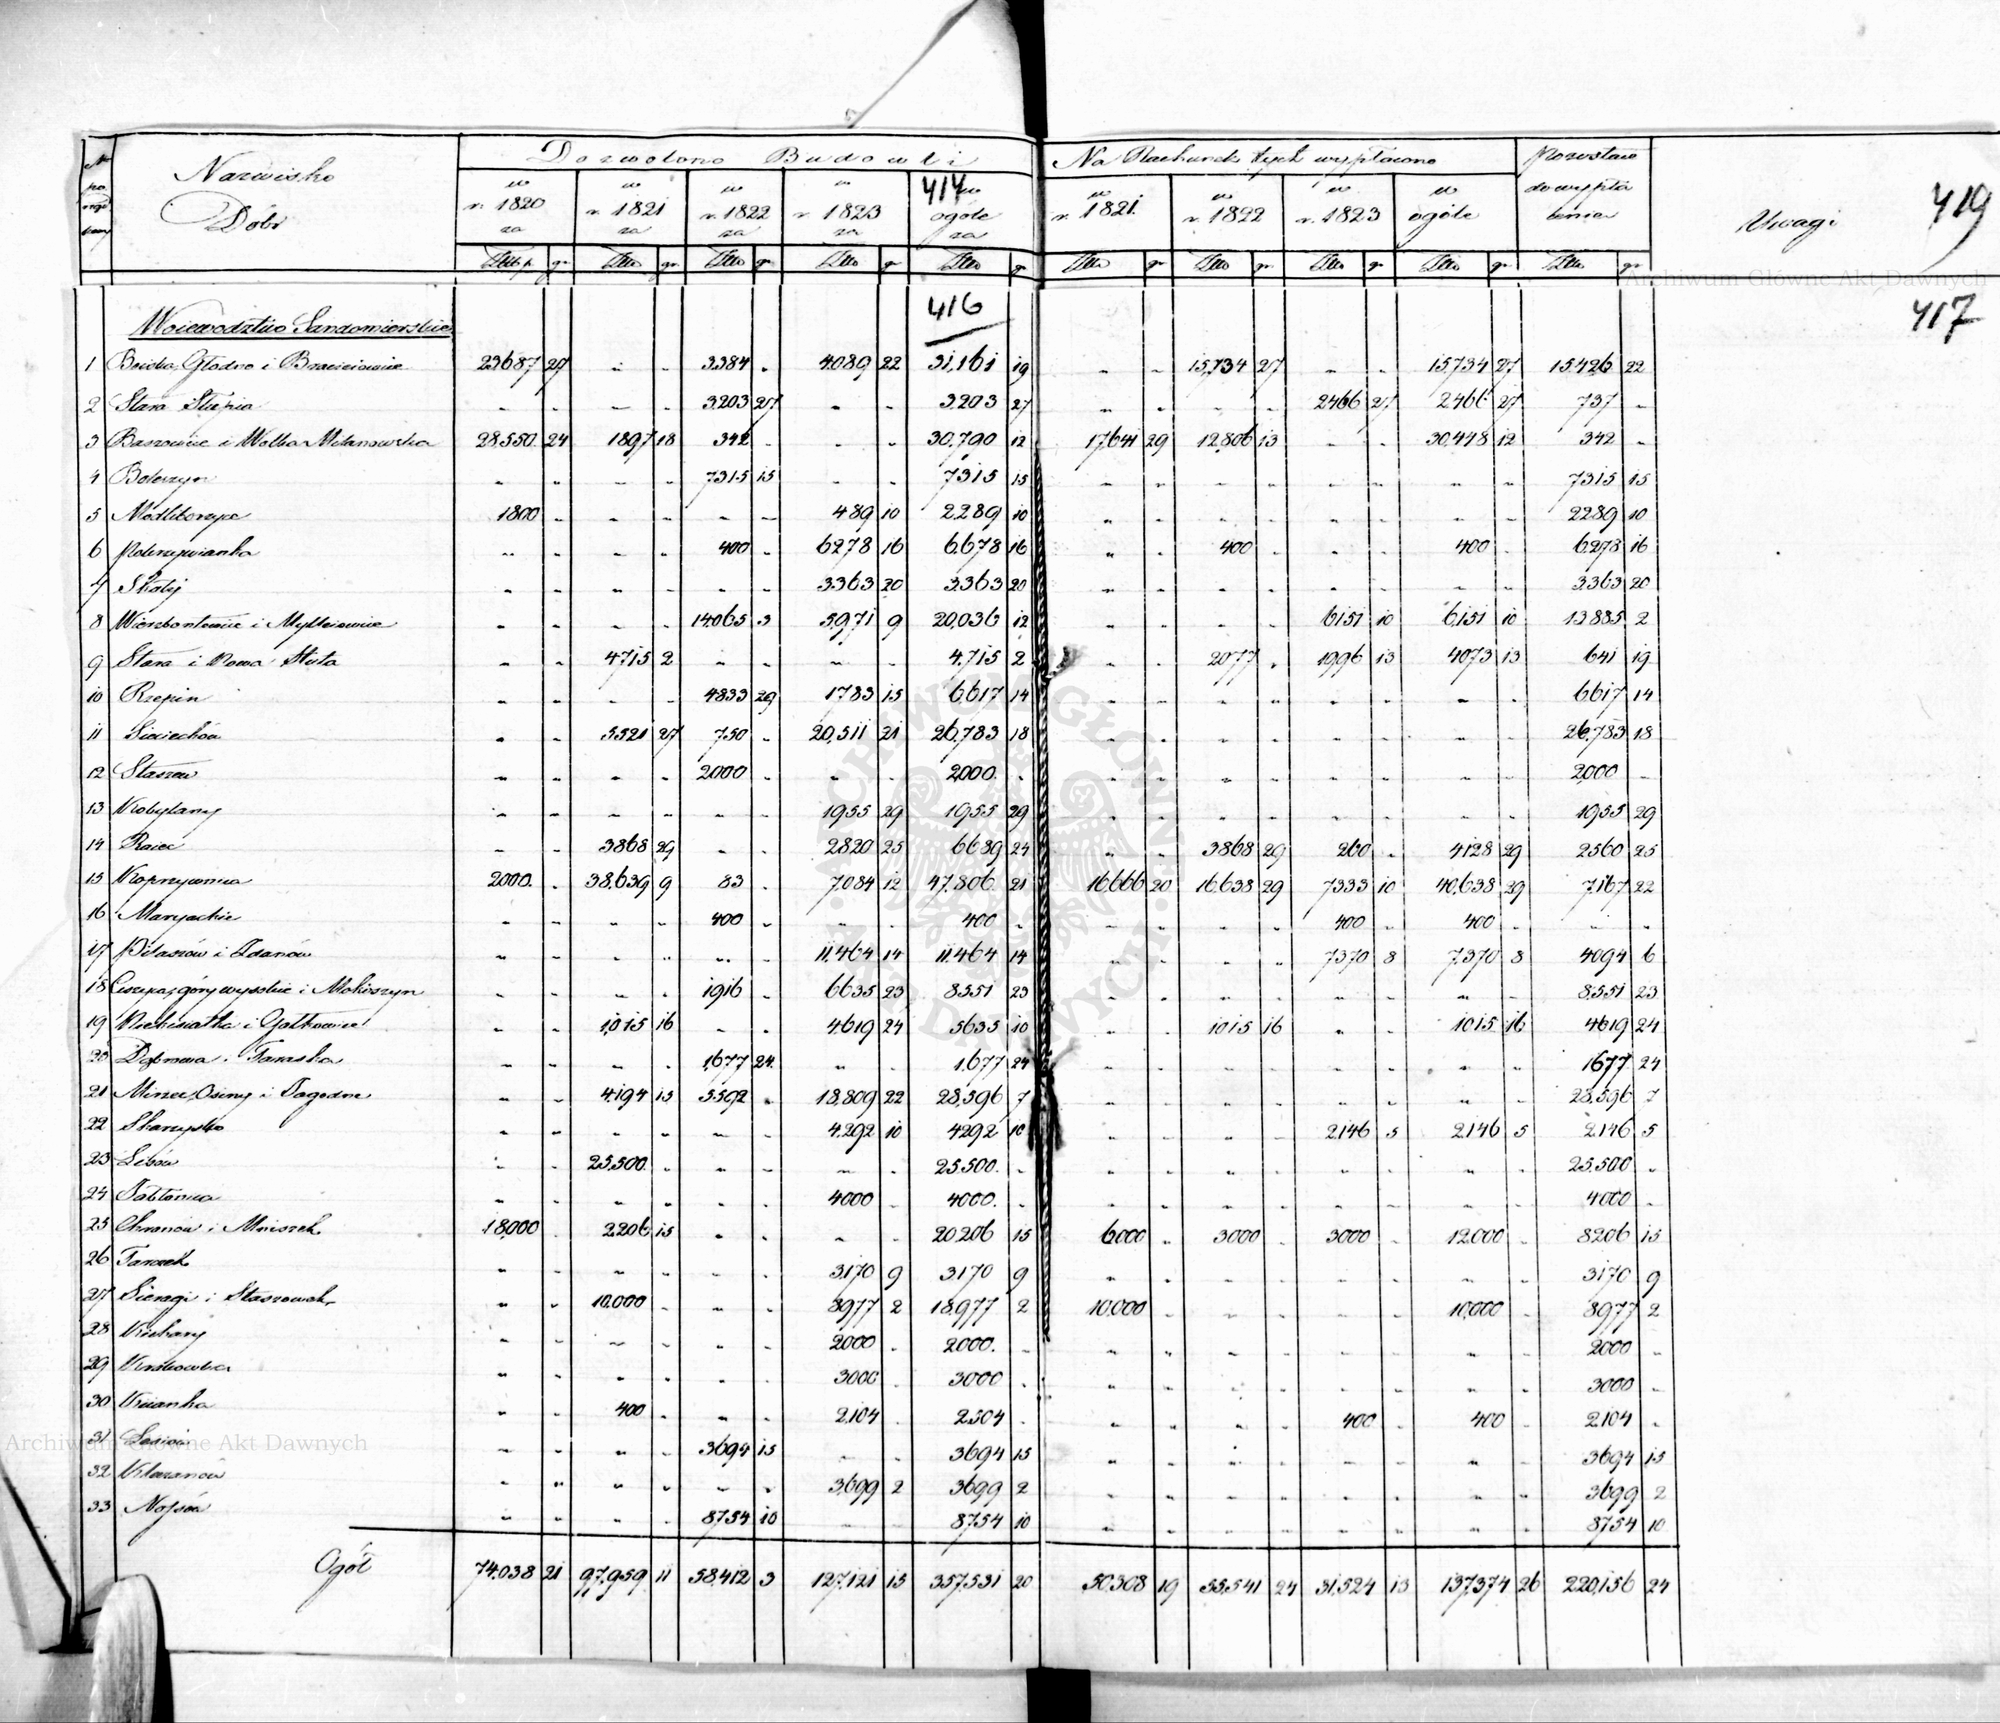 No po rządkowy
Nazwisko Dóbr
Dozwolono Budowli
w r. 1820 za
w r. 1821 za
w r. 1822 za
w r. 1823 za
w ogóle za
Na Rachunek tych wypłacono
w r. 1821.
w r. 1822
w r. 1823
w ogóle
Pozostaie do wypłacenia
Uwagi
414
419
Złt. p. gr Złt gr Złt gr Złt gr Złt gr Złt gr Złt gr Złt gr Złt gr Złt gr
Archiwum Główne Akt Dawnych
416
417
Woiewodztwo Sandomierskie
1 23687 27 " " 3384 " 4089 22 31,161 19 " " 15,734 27 " " 15,734 27 15,426 22
2 Stara Słupia " " " " 3,203 27 " " 3,203 27 " " " " 2466 27 2466 27 737 "
3 Baszowice i Wolka Milanowska 28,550 24 1897 18 342 " " " 30,790 12 17,641 29 12,806 13 " " 30,448 12 342 "
4 Boleszyn " " " " 7315 15 " " 7315 15 " " " " " " " " 7315 15
5 Modliborzyce 1800 " " " " " 489 10 2289 10 " " " " " " " " 2289 10
6 Pokrzywianka " " " " 400 " 6278 16 6,678 16 " " 400 " " " 400 " 6278 16
7 Skały " " " " " " 3363 20 3363 20 " " " " " " " " 3363 20
8 Wierzbontowice i Mydłowice " " " " 14,065 3 5971 9 20,036 12 " " " " 6151 10 6,151 10 13,885 2
9 Stara i Nowa Huta " " 4715 2 " " " " 4,715 2 " " 2077 " 1996 13 4073 13 641 19
10 Rzepin " " " " 4833 29 1783 15 6,617 14 " " " " " " " " 6,617 14
11 Sieciechów " " 5521 27 750 " 20,511 21 26,783 18 " " " " " " " " 26,783 18
12 Staszów " " " " 2000 " " " 2000 " " " " " " " " " 2000 "
13 Kobylany " " " " " " 1955 29 1955 29 " " " " " " " " 1955 29
14 Raiec " " 3868 29 " " 2820 25 6689 24 " " 3868 29 260 " 4128 29 2560 25
15 Koprzywnica 2000 " 38,639 9 83 " 7,084 12 47,806 21 16,666 20 16,638 29 7333 10 40,638 29 7,167 22
16 Maryackie " " " " 400 " " " 400 " " " " " 400 " 400 " " "
17 i Zdanów " " " " " " 11,464 14 11,464 14 " " " " 7370 8 7,370 8 4094 6
18 góry wysokie i Mokoszyn " " " " 1916 " 6635 23 8,551 23 " " " " " " " " 8,551 23
19 i Gołkowice " " 1,015 16 " " 4619 24 5635 10 " " 1015 16 " " 1015 16 4619 24
20 Dąbrowa i Tarnska " " " " 1,677 24 " " 1,677 24 " " " " " " " " 1677 24
21 Mirzec, Osiny i Jagodne " " 4,194 15 5592 " 18,809 22 28,596 7 " " " " " " " " 28,596 7
22 Skarzysko " " " " " " 4,292 10 4292 10 " " " " 2,146 5 2,146 5 2146 5
23 " " 25,500 " " " " " 25,500 " " " " " " " " " 25,500 "
24 Jabłonica " " " " " " 4000 " 4000 " " " " " " " " " 4000 "
25 Chronów i Mniszek 18,000 " 2,206 15 " " " " 20,206 15 6000 " 3000 " 3000 " 12,000 " 8206 15
26 Tarczek " " " " " " 3,170 9 3170 9 " " " " " " " " 3170 9
27 Sieragi i Staszowek " " 10,000 " " " 8977 2 18,977 2 10,000 " " " " " 10,000 " 8977 2
28 Kichary " " " " " " 2000 " 2000 " " " " " " " " " 2000 "
29 " " " " " " 3000 " 3000 " " " " " " " " " 3000 "
30 " " 400 " " " 2,104 " 2504 " " " " " 400 " 400 " 2,104 "
31 " " " " 3694 15 " " 3694 15 " " " " " " " " 3694 15
Archiwum Główne Akt Dawnych
32 " " " " " " 3,699 2 3699 2 " " " " " " " " 3699 2
33 " " " " 8754 10 " " 8754 10 " " " " " " " " 8754 10
Ogół 74,038 21 97,959 11 58,412 3 127,121 15 357,531 20 50,308 19 55,541 24 31,524 13 137,374 26 220,156 24
ARCHIWUM GŁÓWNE AKT DAWNYCH